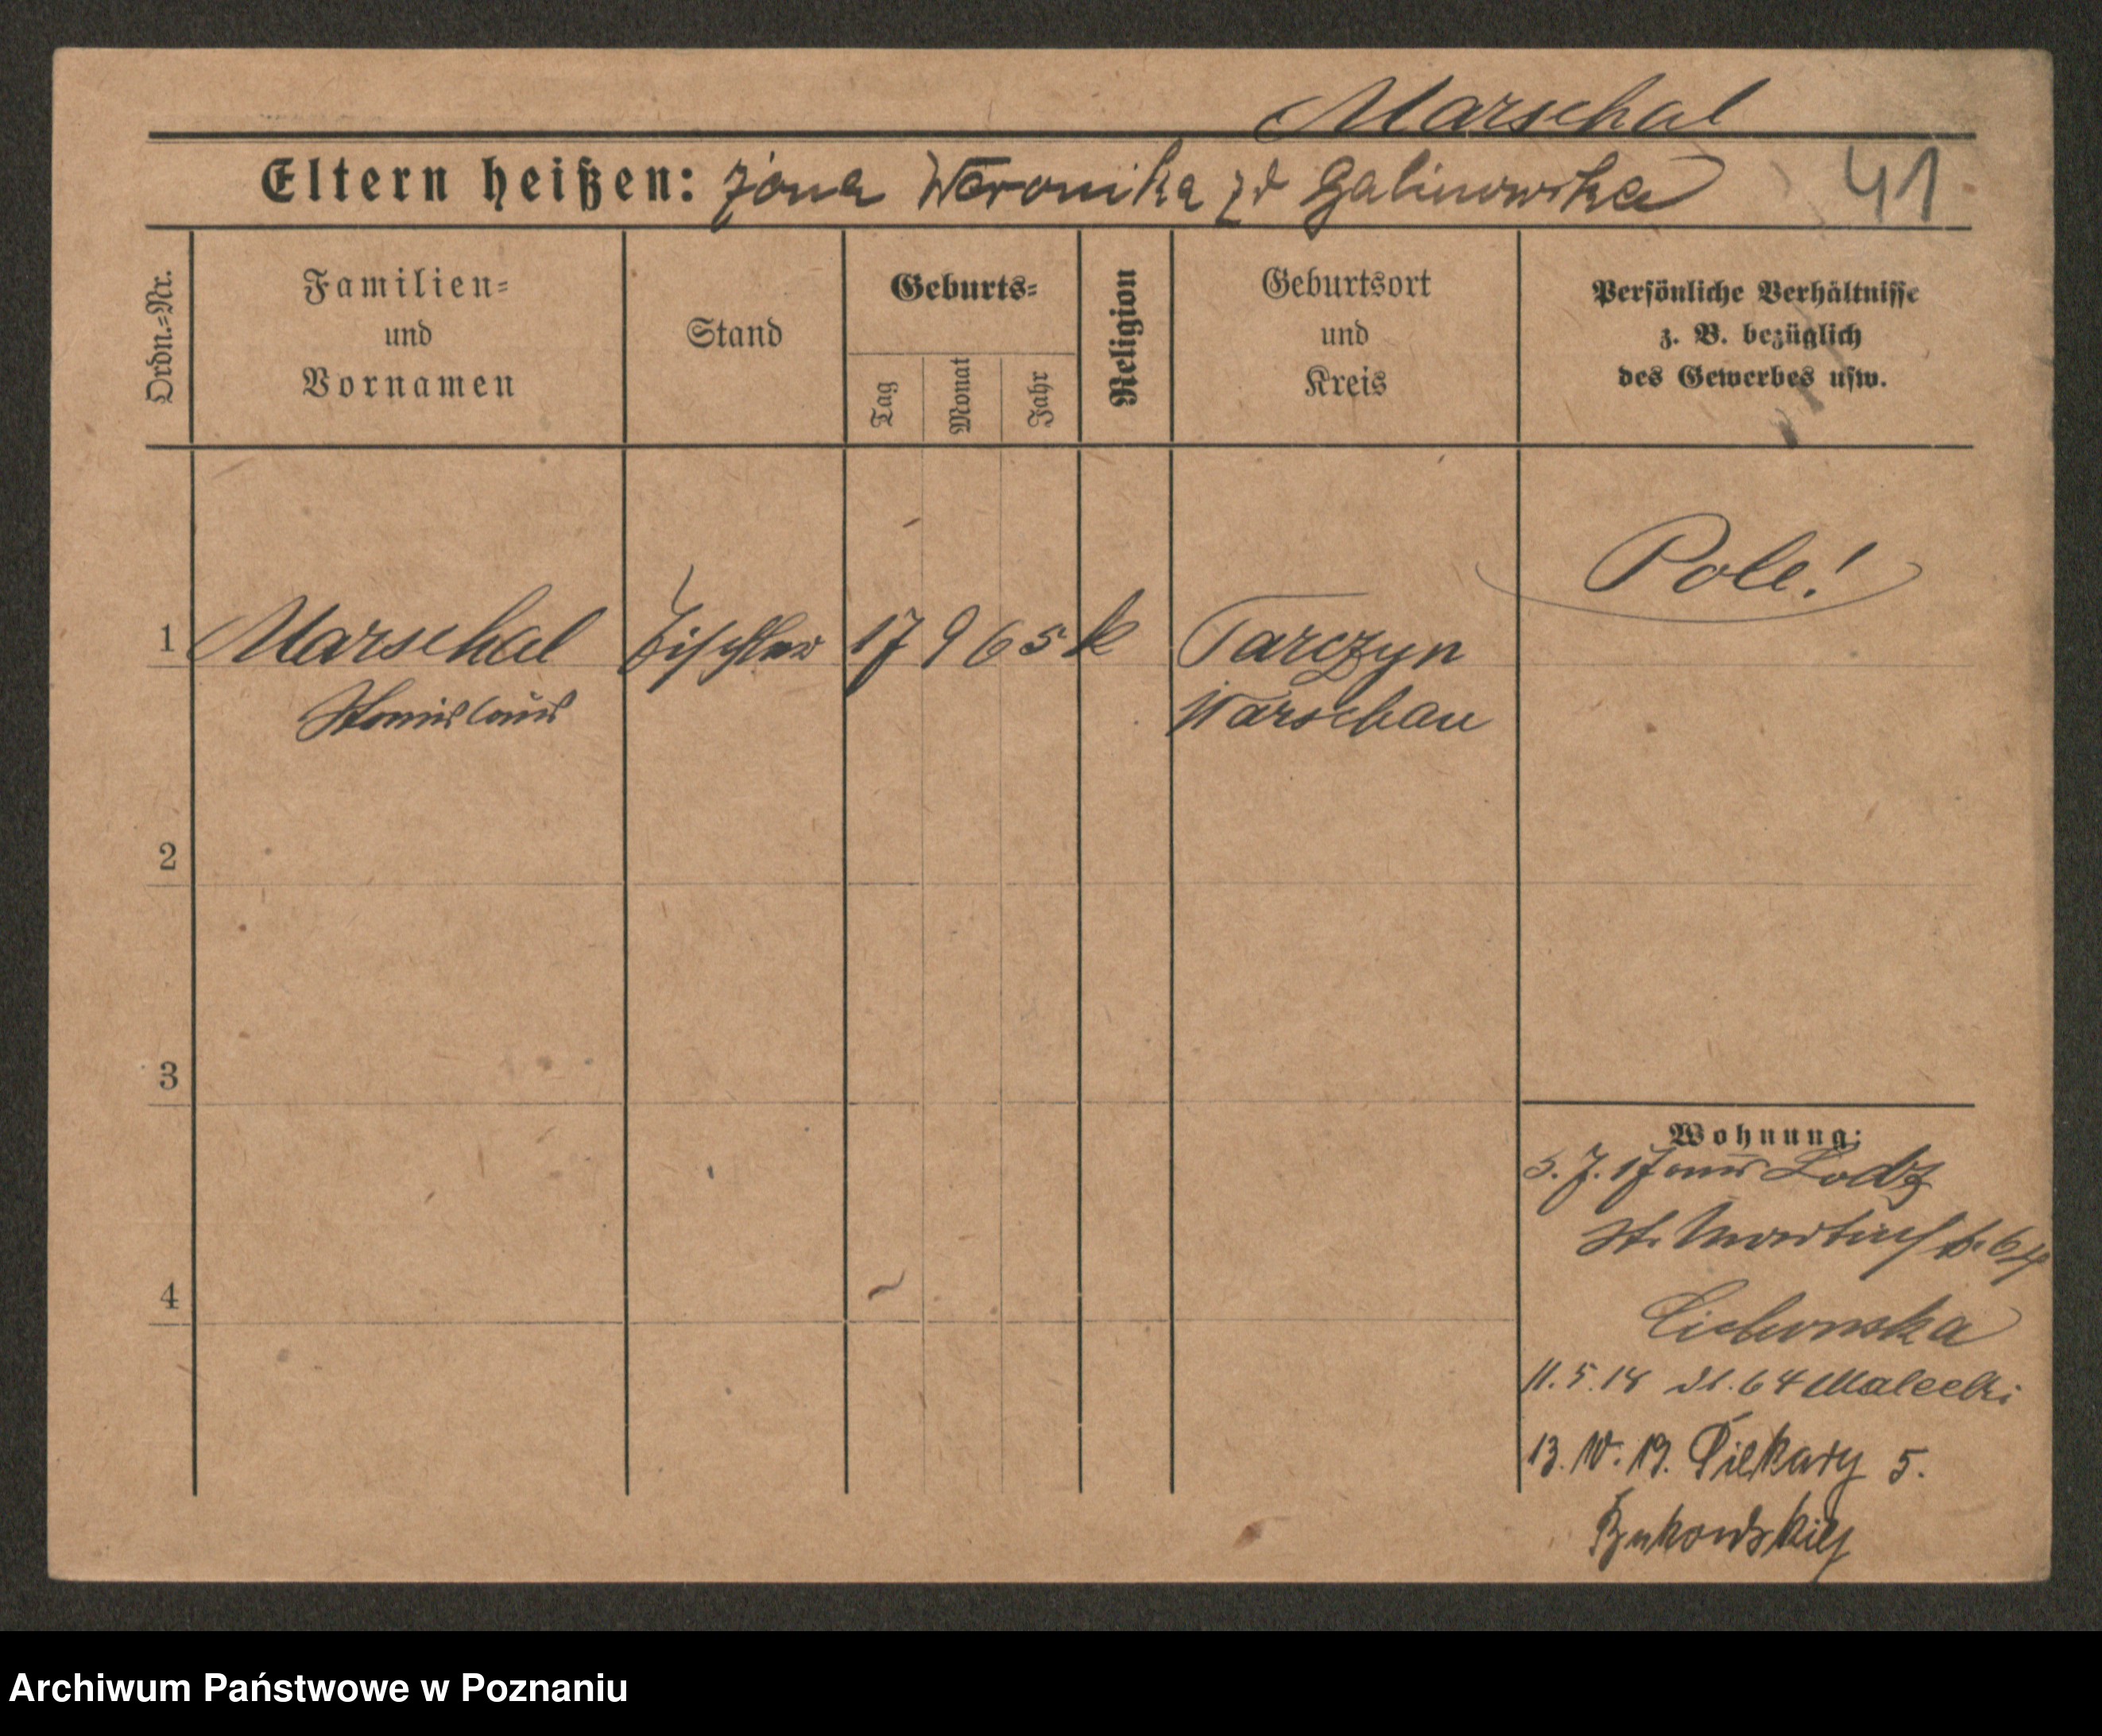 Marschal
Eltern heißen: żona Weronika zd Galinowska 41
Ordn.=Nr. Familien= und Vornamen Stand Geburts= Tag Monat Jahr Religion Geburtsort und Kreis Persönliche Verhältnisse z. B. bezüglich des Gewerbes usw.
Pole!
1 Marschal Tischler 17 9 65 k Tarczyn
Stanislaus Warschau
2
3
Wohnung:
5.7.17 aus Lodz
St. Martinstr. 64
Cichonska
11.5.18 64 Malecki
13. IV. 19. Piekary 5.
Archiwum Państwowe w Poznaniu
4